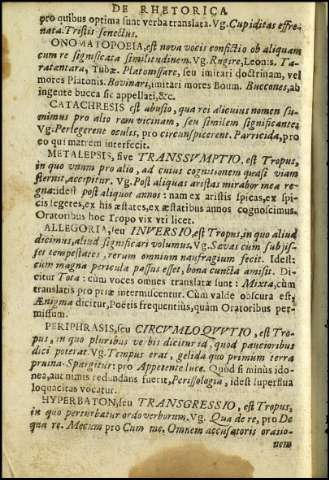 DE RHETORICA
pro quibus optima sunt verba translata. Vg. Cupiditas effre-
nata. Tristis senectus.
ONOMATOPOEIA, est nova vocis confictio ob aliquam
cum re significata similitudinem. Vg. Rugire, Leonis. Ta-
ratantara, Tubæ. Platonissare, seu imitari doctrinam, vel
mores Platonis. Bovinari, imitari mores Boum. Buccones, ab
ingente bucca sic appellati, &c.
CATACHRESIS est abusio, qua rei alicuius nomen su-
mimus pro alio rem vicinam, seu similem significante:
Vg. Perlegerent oculis, pro circunspicerent. Parricida, pro
eo qui matrem interfecit.
METALEPSIS, sive TRANSSVMPTIO, est Tropus,
in quo vnum pro alio, ad cuius cognitionem quasi viam
sternit, accipitur. Vg. Post aliquas aristas mirabor mea re-
gna: idest post aliquot annos: nam ex aristis spicas, ex spi-
cis segetes, ex his æstates, ex æstatibus annos cognoscimus.
Oratoribus hoc Tropo vix vti licet.
ALLEGORIA, seu INVERSIO, est Tropus, in quo aliud
dicimus, aliud significari volumus. Vg. Sævas cum subiis-
set tempestates, rerum omnium naufragium fecit. Idest:
cum magna pericula passus esset, bona cuncta amisit. Di-
citur Tota: cùm voces omnes translatæ sunt: Mixta, cùm
translatis pro priæ intermiscentur. Cùm valde obscura est,
Ænigma dicitur, Poëtis frequentius, quàm Oratoribus per-
missum.
PERIPHRASIS, seu CIRCVMLOQVVTIO, est Tro-
pus, in quo pluribus verbis dicitur id, quod paucioribus
dici poterat. Vg. Tempus erat, gelida quo primùm terra
pruina. Spargitur: pro Appetente luce. Quòd si minùs ido-
nea, aut nimis redundans fuerit, Perissologia, idest superflua
loquacitas vocatur.
HYPERBATON, seu TRANSGRESSIO, est Tropus,
in quo perturbatur ordo verborum. Vg. Qua de re, pro De
qua re. Mecum pro Cum me. Omnem accusatoris oratio-
nem